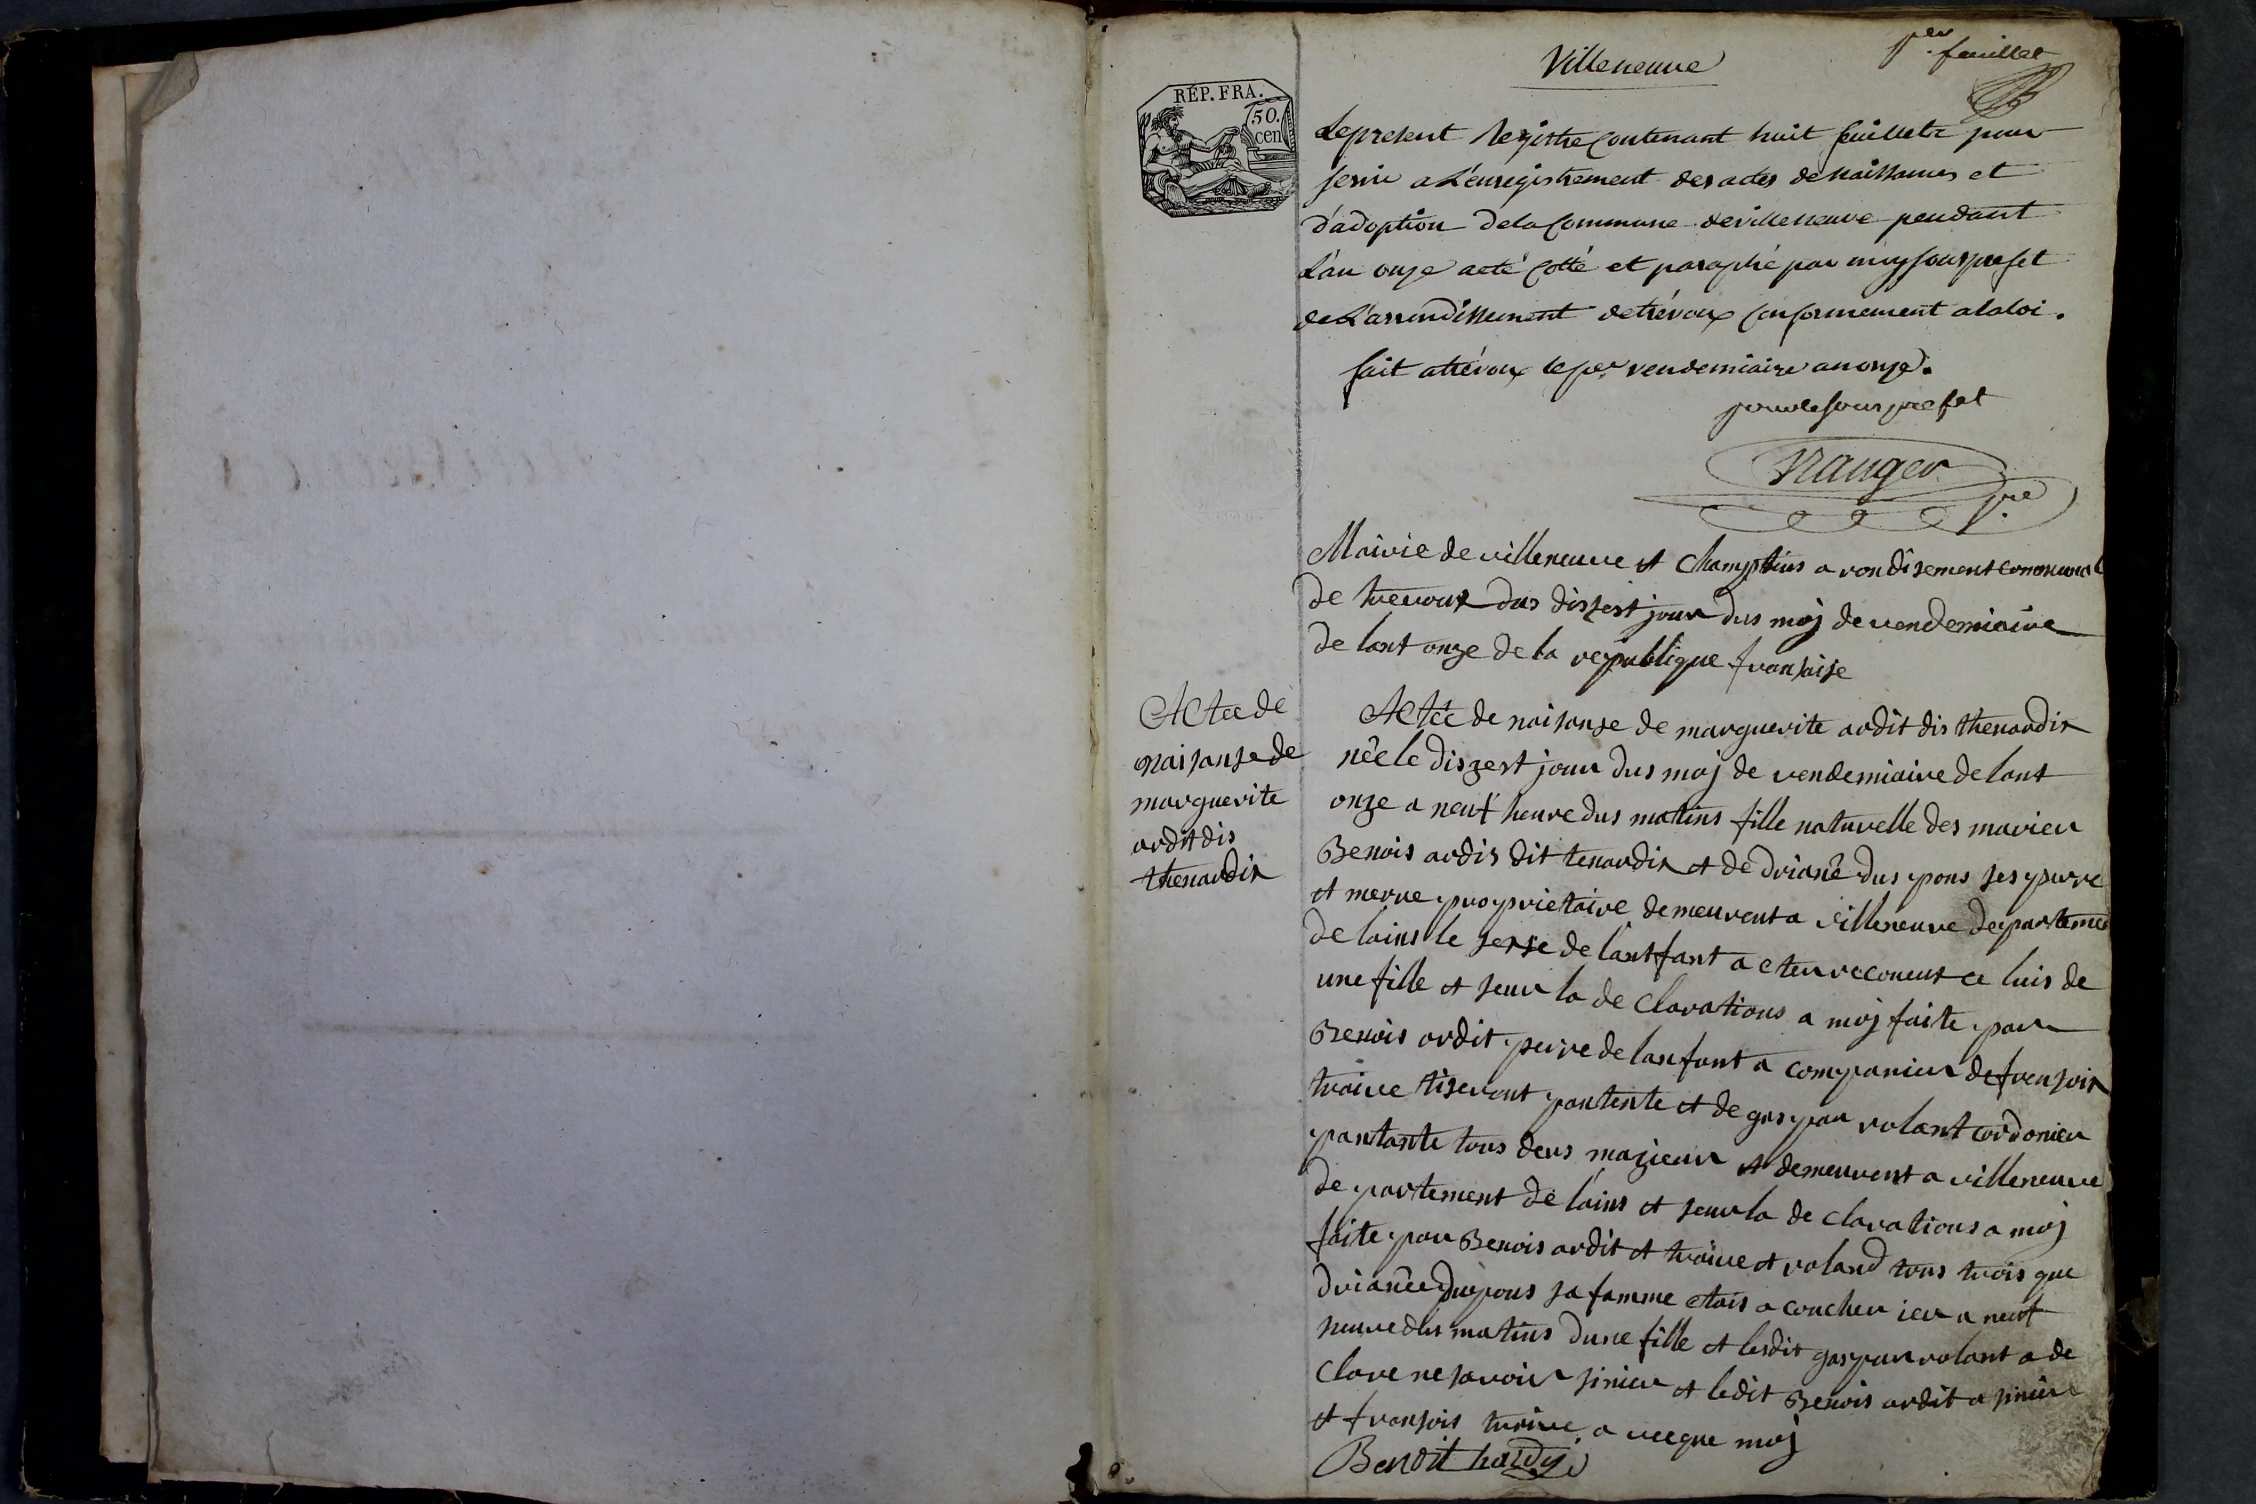 Villeneuve
p.er feuillet
RÉP. FRA.
50.
cen
Le present Registre contenant huit feuillets pour
servir a L'enregistrement des actes de naissances et
d'adoption de la Commune de villeneuve pendant
L'an onze a eté cotté et paraphé par moy sous prefet
de L'arrondissement de trévoux conformement a la loi.
fait a trévoux le p.er vendemiaire an onze.
pour le sous prefet
Mairie de villeneuve et Champtins a rondisement communal
de trevoux dus diszest jour dus moj de vendemiaire
de lant onze de la republique fransaise
Actee de
naisanse de
marguerite
ardit dis
thenardin
Actée de naisanse de marguerite ardit dis thenardin
née le diszest jour dus moj de vendemiaire de lant
onze a neuf heure dus matins fille naturelle des marieu
Benois ardis dit tenardin et de driane dus pons ses perre
et merre proprietaire demeurent a villeneuve departemen
de lains le sexse de lantfant a eteu reconeut ce luis de
une fille et seur la de clarations a moj faite par
Benois ardit perre de lanfant a companieu de fransois
traive tiserant pantente et de gaspar rolant cordonieu
pantante tous deus mazieur et demeurent a villeneuve
de partement de lains et seur la de clarations a moj
faite par Benois ardit et traive et roland tous trois que
driane Dupons sa famme etais a coucheu ier a neuf
heure dus matins dune fille et lesdit gaspar rolant a de
clare ne savoir sinieu et ledit Benois ardit a sinieu
et fransois traive a vecque moj
Benoit hardy